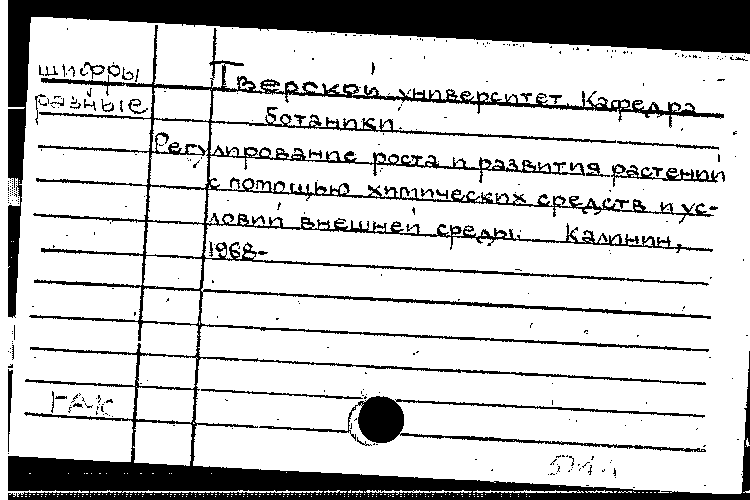 шифры
разные
Тверской университет. Кафедра
ботаники.
Регулирование роста и развития растений
с помощью химических средств и ус-
ловий внешней среды. Калинин,
1968-
ГАК